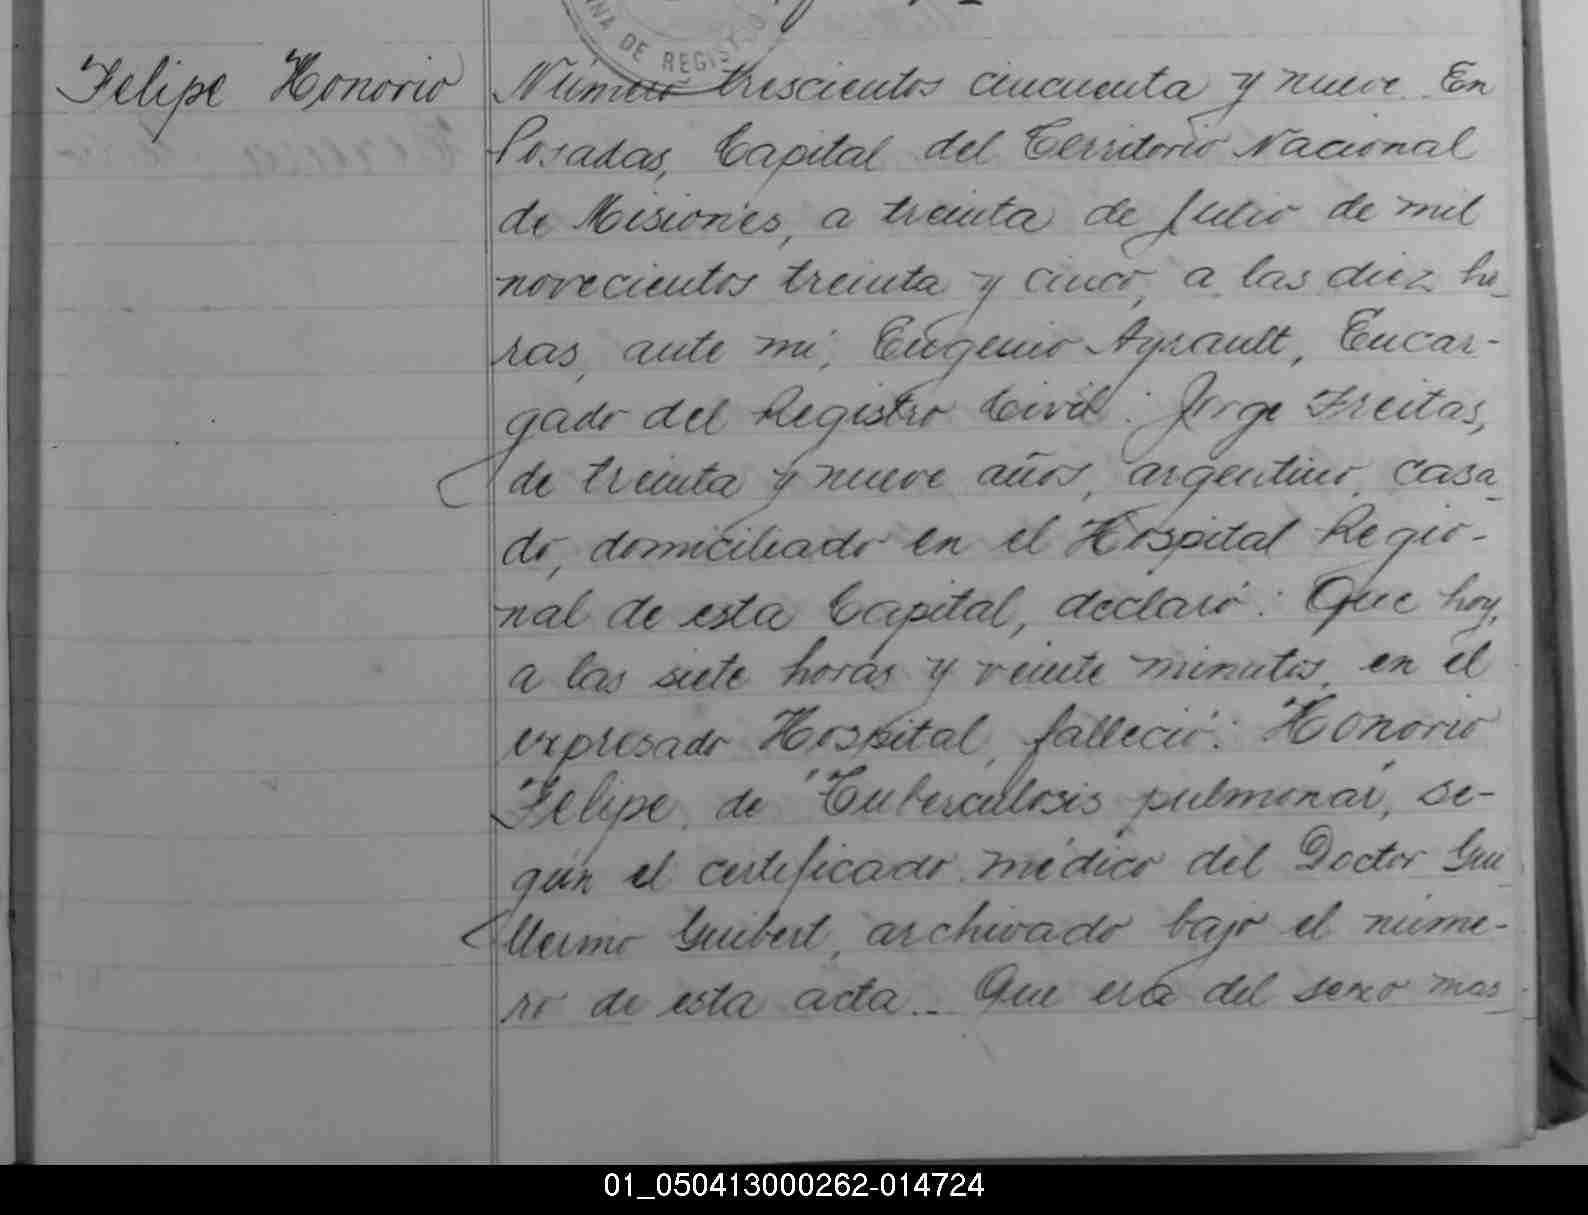 NA DE REGISTRO
Felipe Honorio
Número trescientos cincuenta y nueve. En
Posadas, Capital del Territorio Nacional
de Misiones, a treinta de Julio de mil
novecientos treinta y cinco, a las diez ho_
ras, ante mi, Eugenio Ayrault, Encar-
gado del Registro Civil: Jorge Freitas,
de treinta y nueve años, argentino, casa_
do, domiciliado en el Hospital Regio-
nal de esta Capital, declaró: Que hoy,
a las siete horas y veinte minutos, en el
expresado Hospital, falleció: Honorio
Felipe, de "Tuberculosis pulmonar", se-
gún el certificado médico del Doctor Gui_
llermo Guibert, archivado bajo el núme-
ro de esta acta._ Que era del sexo mas_
01_050413000262-014724